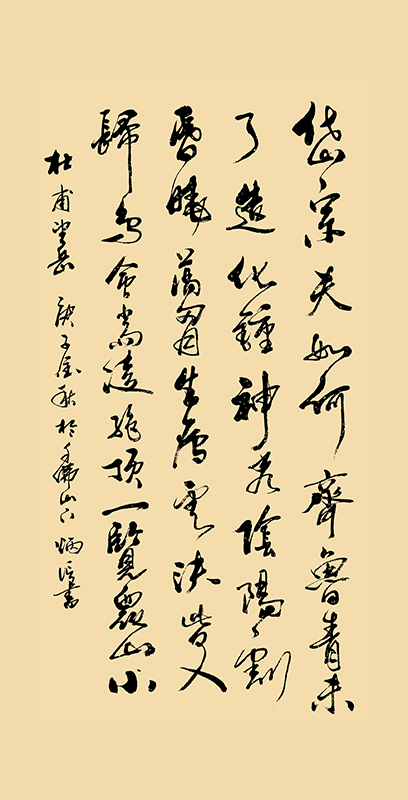 岱宗夫如何齊魯青未
了造化鍾神秀陰陽割
昏曉蕩胸生層雲決眥入
歸鳥會當凌絕頂一覽眾山小
杜甫望岳 庚子金秋於千佛山下 炳書